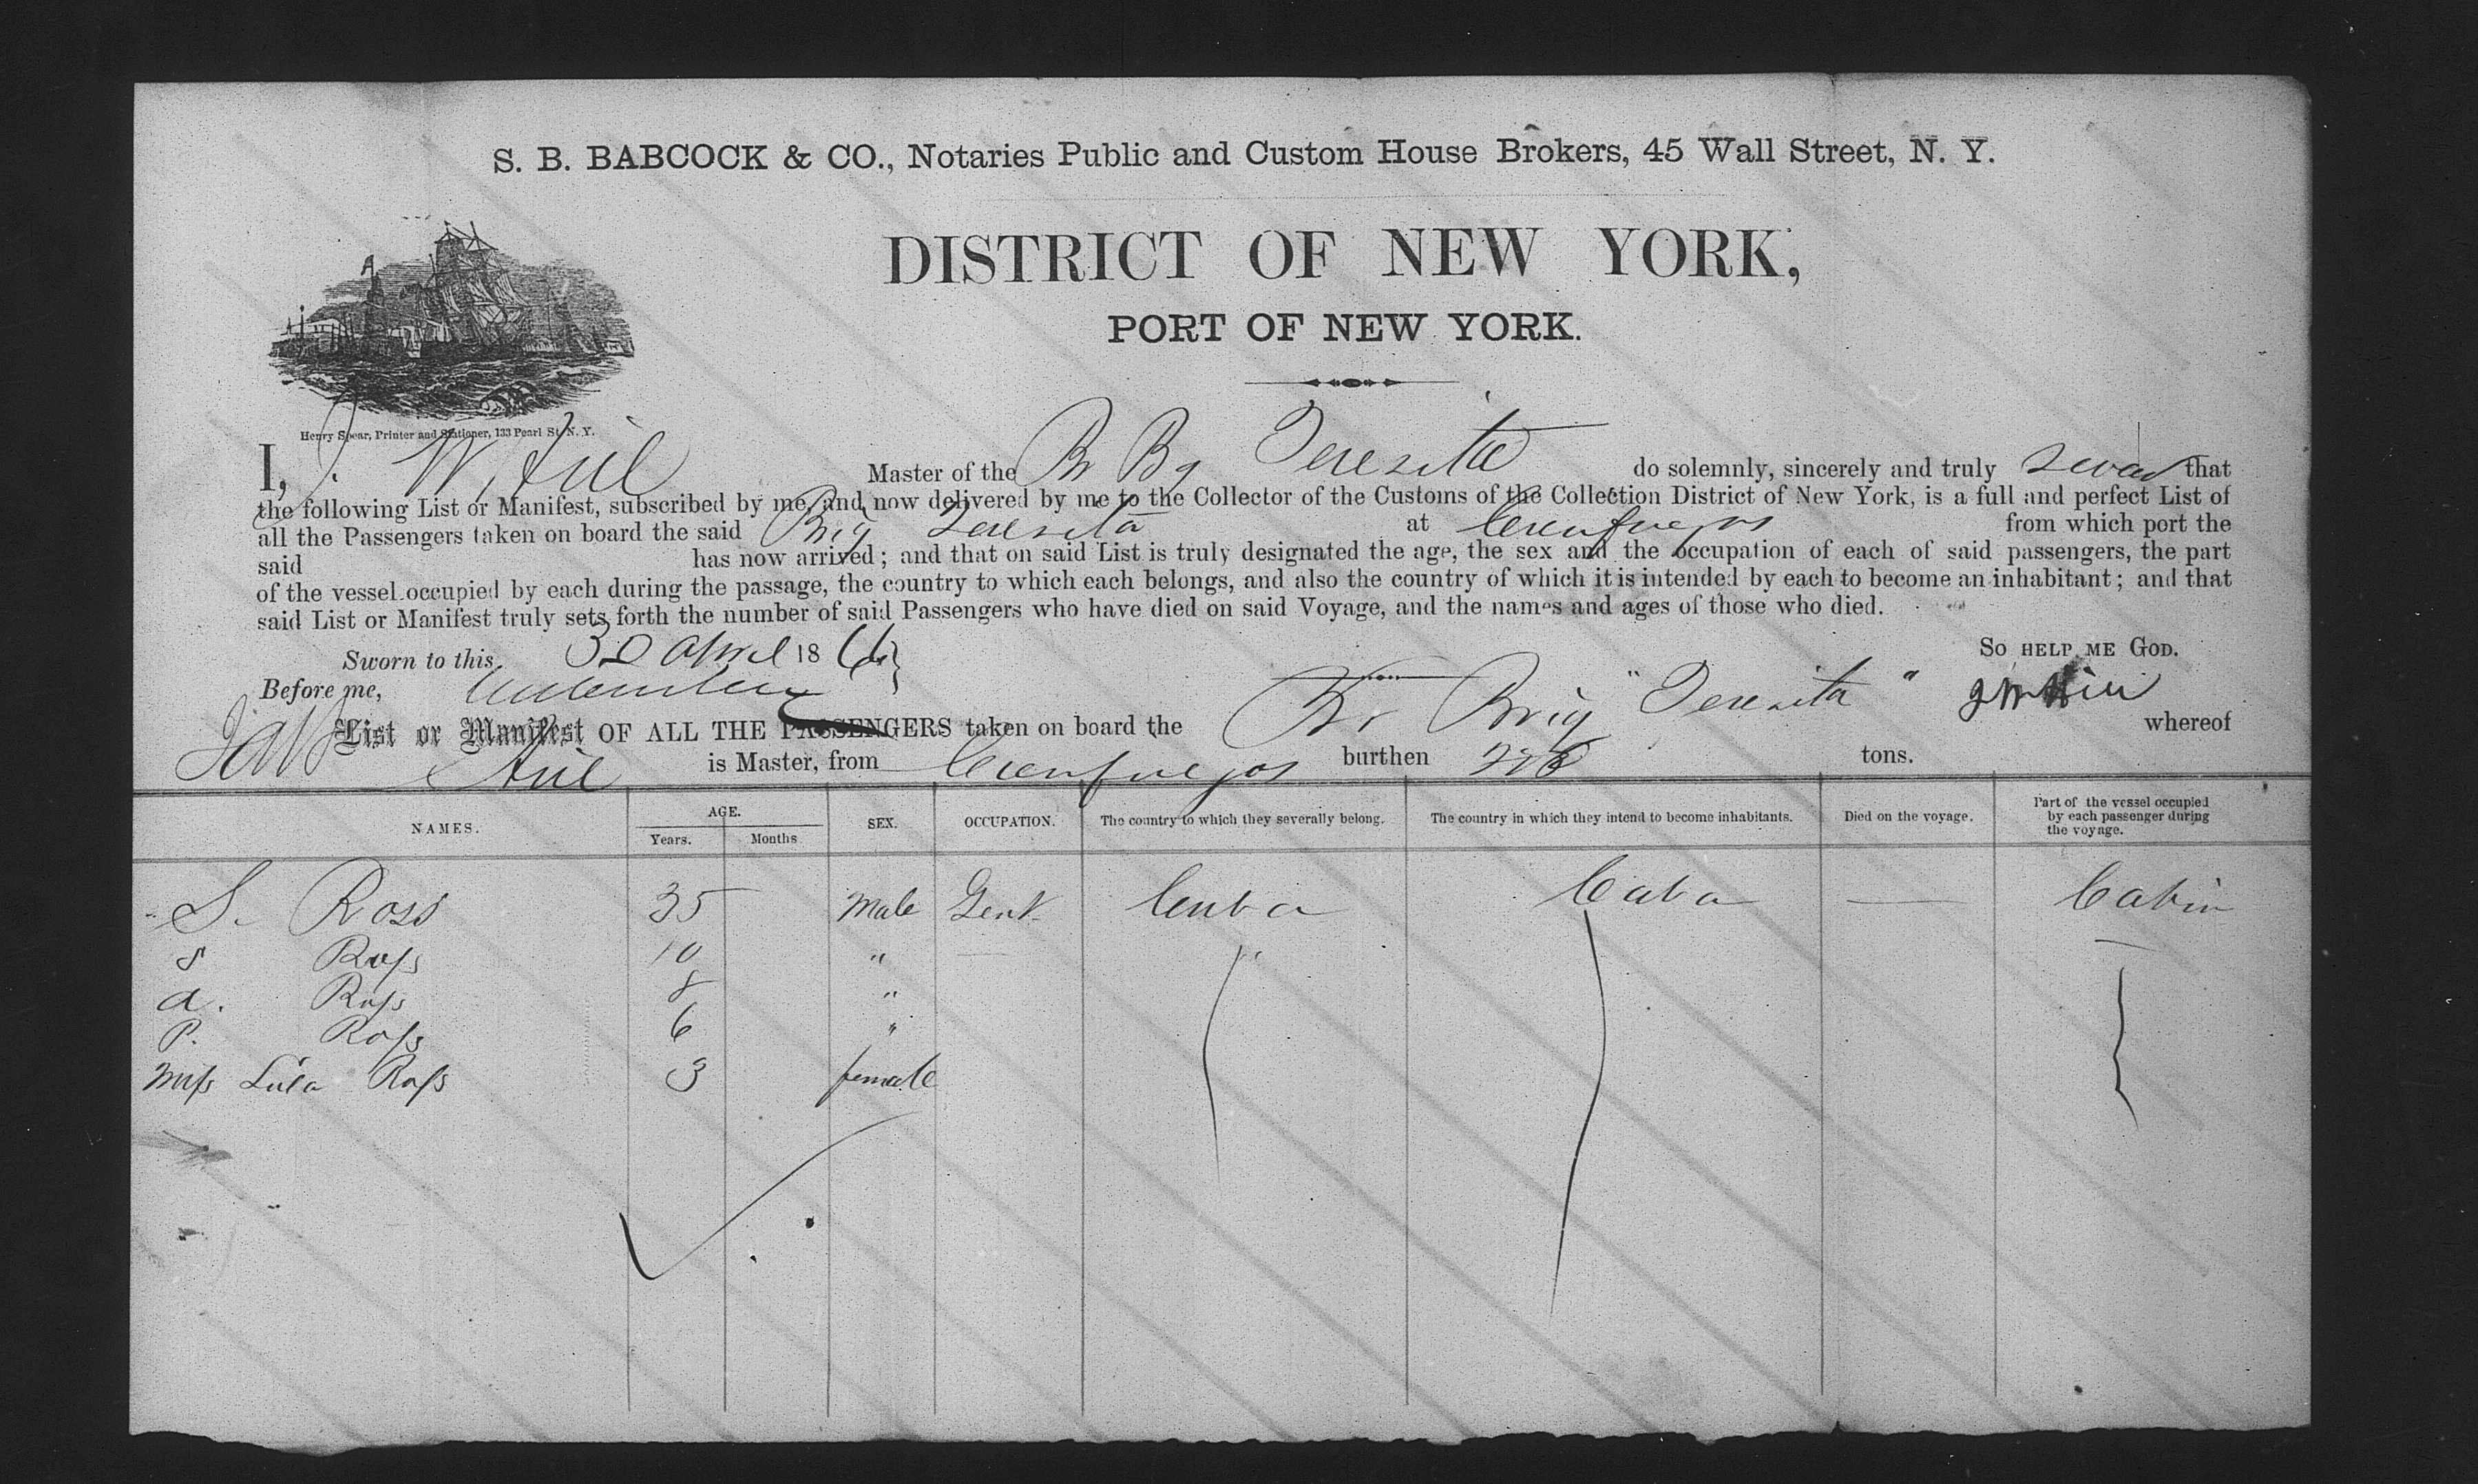 S. B. BABCOCK & CO., Notaries Public and Custom House Brokers, 45 Wall Street, N. Y.
DISTRICT OF NEW YORK,
PORT OF NEW YORK.
Henry Spear, Printer and Stationer, 133 Pearl St. N. Y.
I, J. W. Master of the Br Bg Teresita do solemnly, sincerely and truly swear that
the following List or Manifest, subscribed by me, and now delivered by me to the Collector of the Customs of the Collection District of New York, is a full and perfect List of
all the Passengers taken on board the said Brig Teresita at Cienfuegos from which port the
said has now arrived; and that on said List is truly designated the age, the sex and the occupation of each of said passengers, the part
of the vessel occupied by each during the passage, the country to which each belongs, and also the country of which it is intended by each to become an inhabitant; and that
said List or Manifest truly sets forth the number of said Passengers who have died on said Voyage, and the names and ages of those who died.
SO HELP ME GOD.
Sworn to this 30 April 1866
Before me,
List or Manifest OF ALL THE PASSENGERS taken on board the Br Brig "Teresita" whereof
is Master, from Cienfuegos burthen tons.
NAMES. AGE. Years. Months SEX. OCCUPATION. The country to which they severally belong. The country in which they intend to become inhabitants. Died on the voyage. Part of the vessel occupied by each passenger during the voyage.
S. Ross 35 Male Gent. Cuba Cuba — Cabin
S Ross 10 " — "
A. Ross 8 "
P. Ross 6 "
Miss Lula Ross 3 female